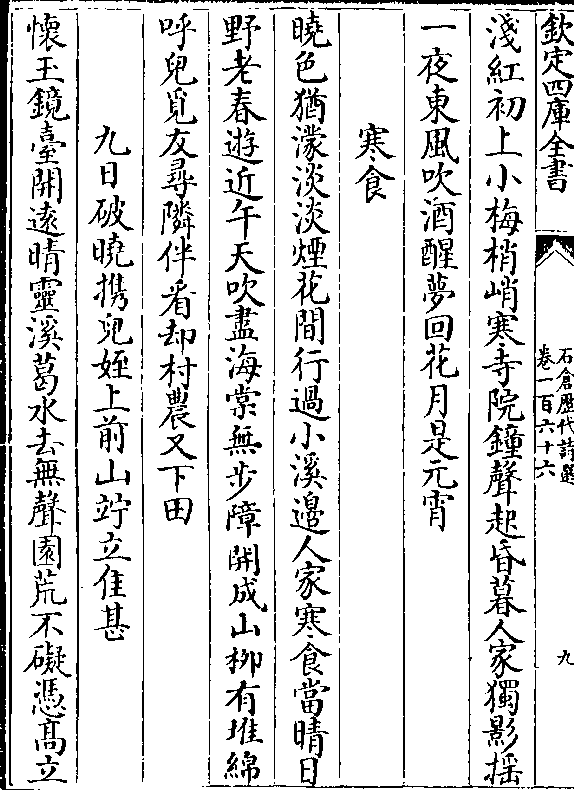 欽定四庫全書
石倉歴代詩選
卷一百六十六
九
淺紅初上小梅梢峭寒寺院鐘聲起昏暮人家獨影揺
一夜東風吹酒醒夢回花月是元宵
寒食
曉色猶濛淡淡煙花間行過小溪邊人家寒食當晴日
野老春遊近午天吹盡海棠無步障開成山栁有堆綿
呼兒覓友尋隣伴看却村農又下田
九日破曉携兒姪上前山竚立佳甚
懷王鏡臺開逺晴靈溪葛水去無聲園荒不礙憑髙立